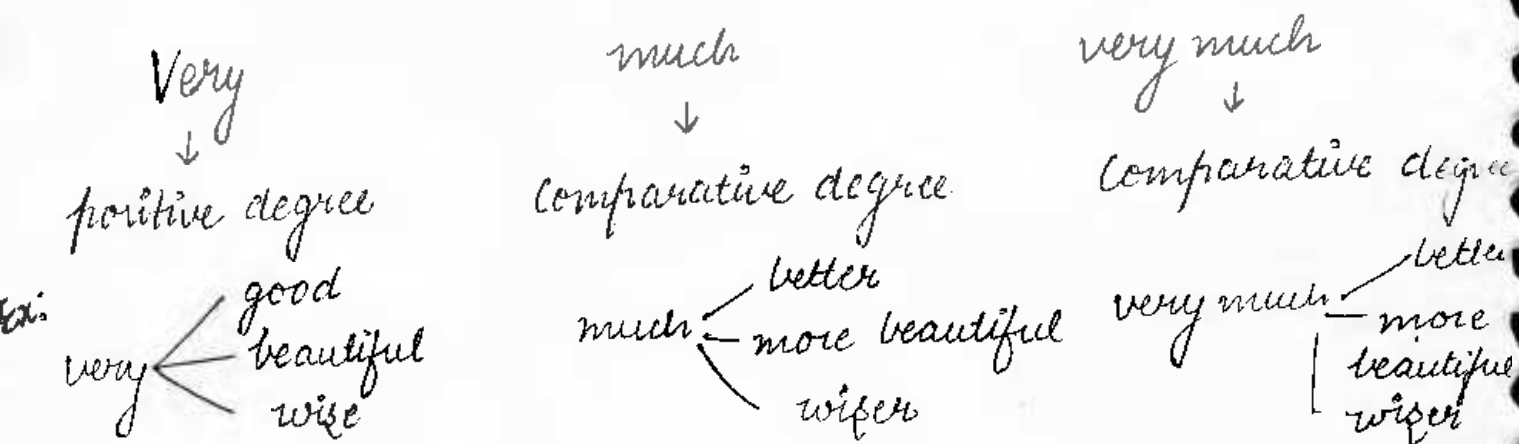 Very
↓
positive degree
Ex:
very
good
beautiful
wise
much
↓
Comparative degree
much
better
more beautiful
wiser
very much
↓
Comparative degree
very much
better
more
beautiful
wiser